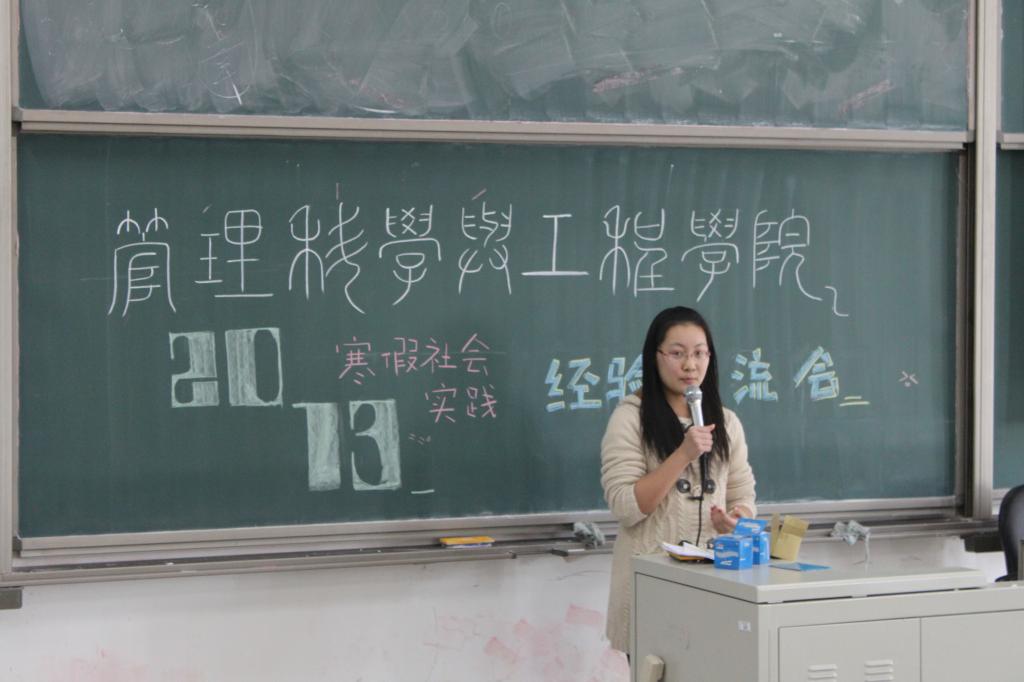 管理科學與工程學院
20
13
寒假社会
实践
经验流会